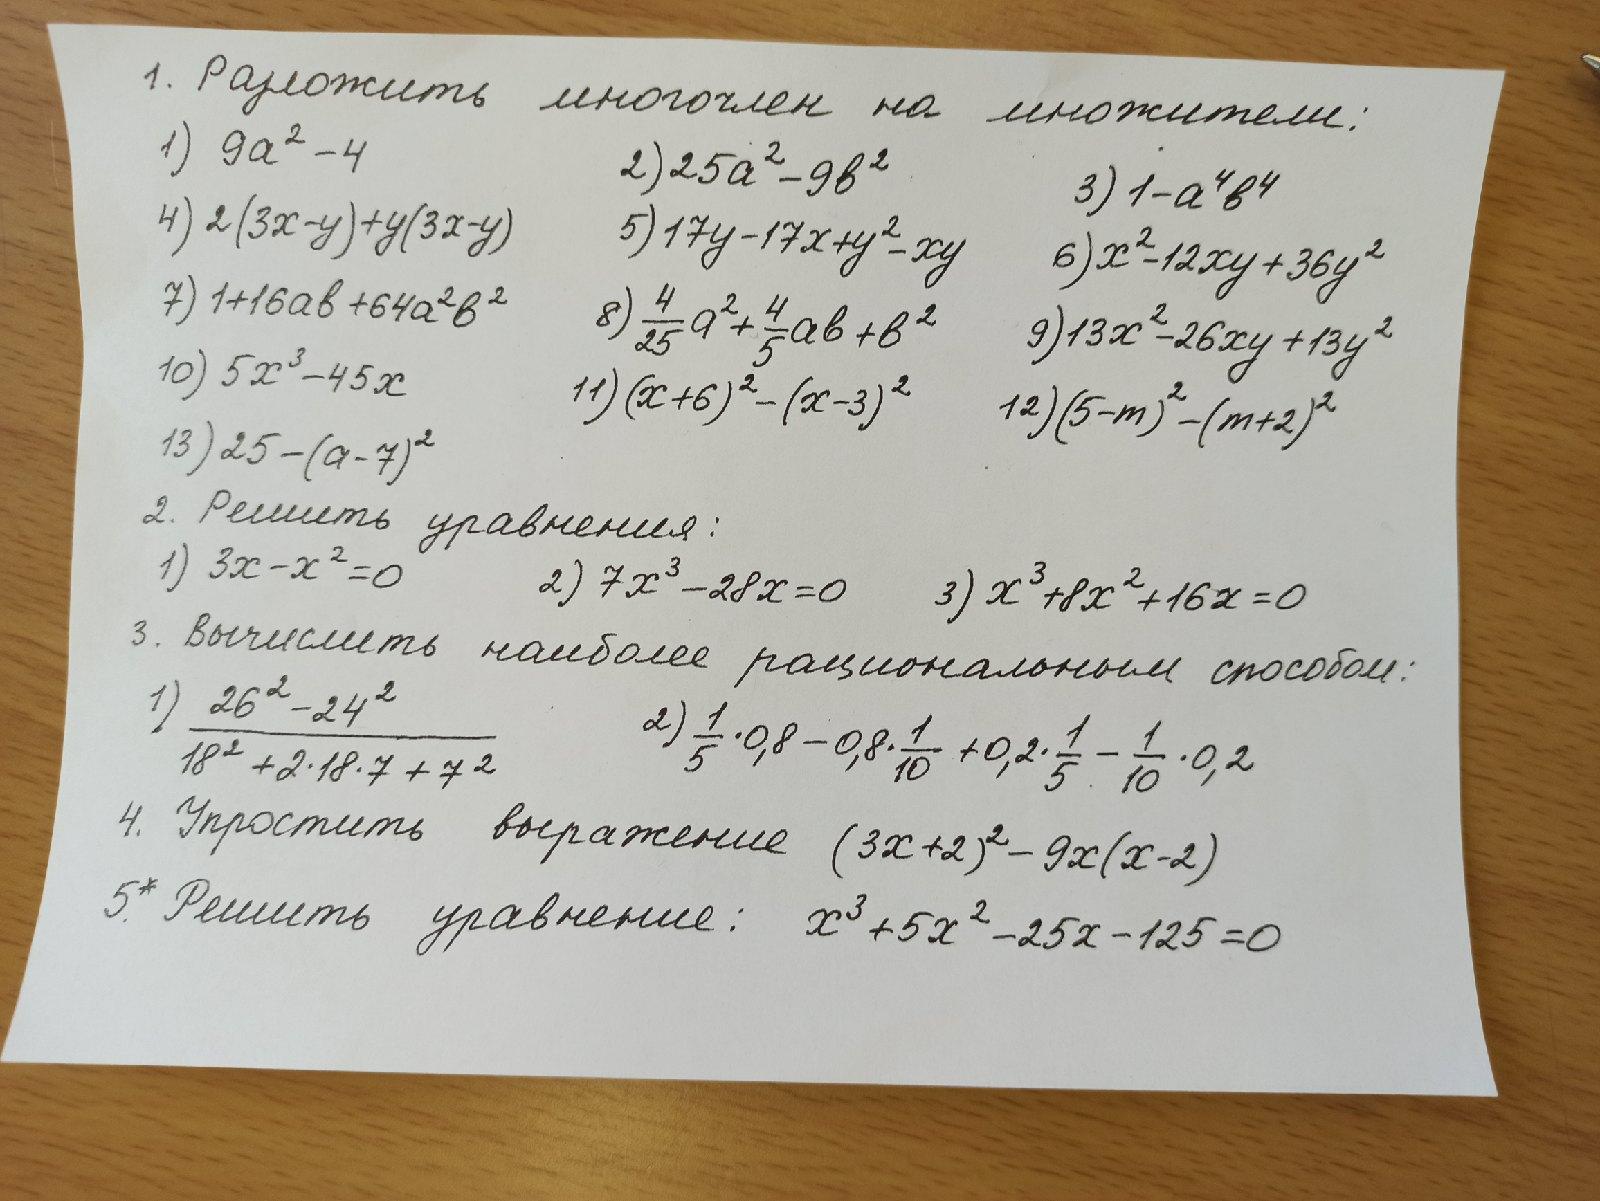 1. Разложить многочлен на множители:
1) 9a² - 4    2) 25a² - 9b²    3) 1 - a⁴b⁴
4) 2(3x-y)+y(3x-y)    5) 17y-17x+y²-xy    6) x²-12xy+36y²
7) 1+16ab+64a²b²    8) 4/25 a² + 4/5 ab + b²    9) 13x²-26xy+13y²
10) 5x³-45x    11) (x+6)²-(x-3)²    12) (5-m)²-(m+2)²
13) 25-(a-7)²
2. Решить уравнения:
1) 3x-x²=0    2) 7x³-28x=0    3) x³+8x²+16x=0
3. Вычислить наиболее рациональным способом:
1) (26²-24²)/(18²+2·18·7+7²)    2) 1/5·0,8-0,8·1/10+0,2·1/5-1/10·0,2
4. Упростить выражение (3x+2)²-9x(x-2)
5.* Решить уравнение: x³+5x²-25x-125=0